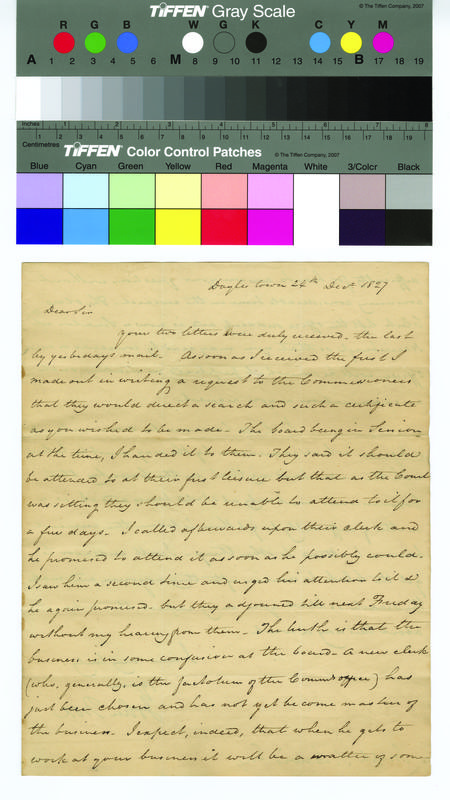 TIFFEN® Gray Scale
© The Tiffen Company, 2007
R G B W G K C Y M
A 1 2 3 4 5 6 M 8 9 10 11 12 13 14 15 B 17 18 19
Inches 1 2 3 4 5 6 7 8
Centimetres 1 2 3 4 5 6 7 8 9 10 11 12 13 14 15 16 17 18 19
TIFFEN® Color Control Patches
© The Tiffen Company, 2007
Blue Cyan Green Yellow Red Magenta White 3/Color Black
Doyles town 24th Decr 1827
Dear Sir
your two letters were duly received - the last
by yesterday's mail. As soon as I received the first I
made out in writing a request to the Commissioners
that they would direct a search and such a certificate
as you wished to be made - The board being in Session
at the time, I handed it to them. They said it should
be attended to at their first leisure but that as the Court
was sitting they should be unable to attend to it for
a few days - I called afterwards upon their clerk and
he promised to attend it as soon as he possibly could.
I saw him a second time and urged his attention to it &
he again promised. but they adjourned till next Friday
without my hearing from them. The truth is that the
business is in some confusion at the board. A new clerk
(who, generally, is the factotum of the Commrs office) has
just been chosen and has not yet become master of
the business. I expect, indeed, that when he gets to
work at your business it will be a matter of some